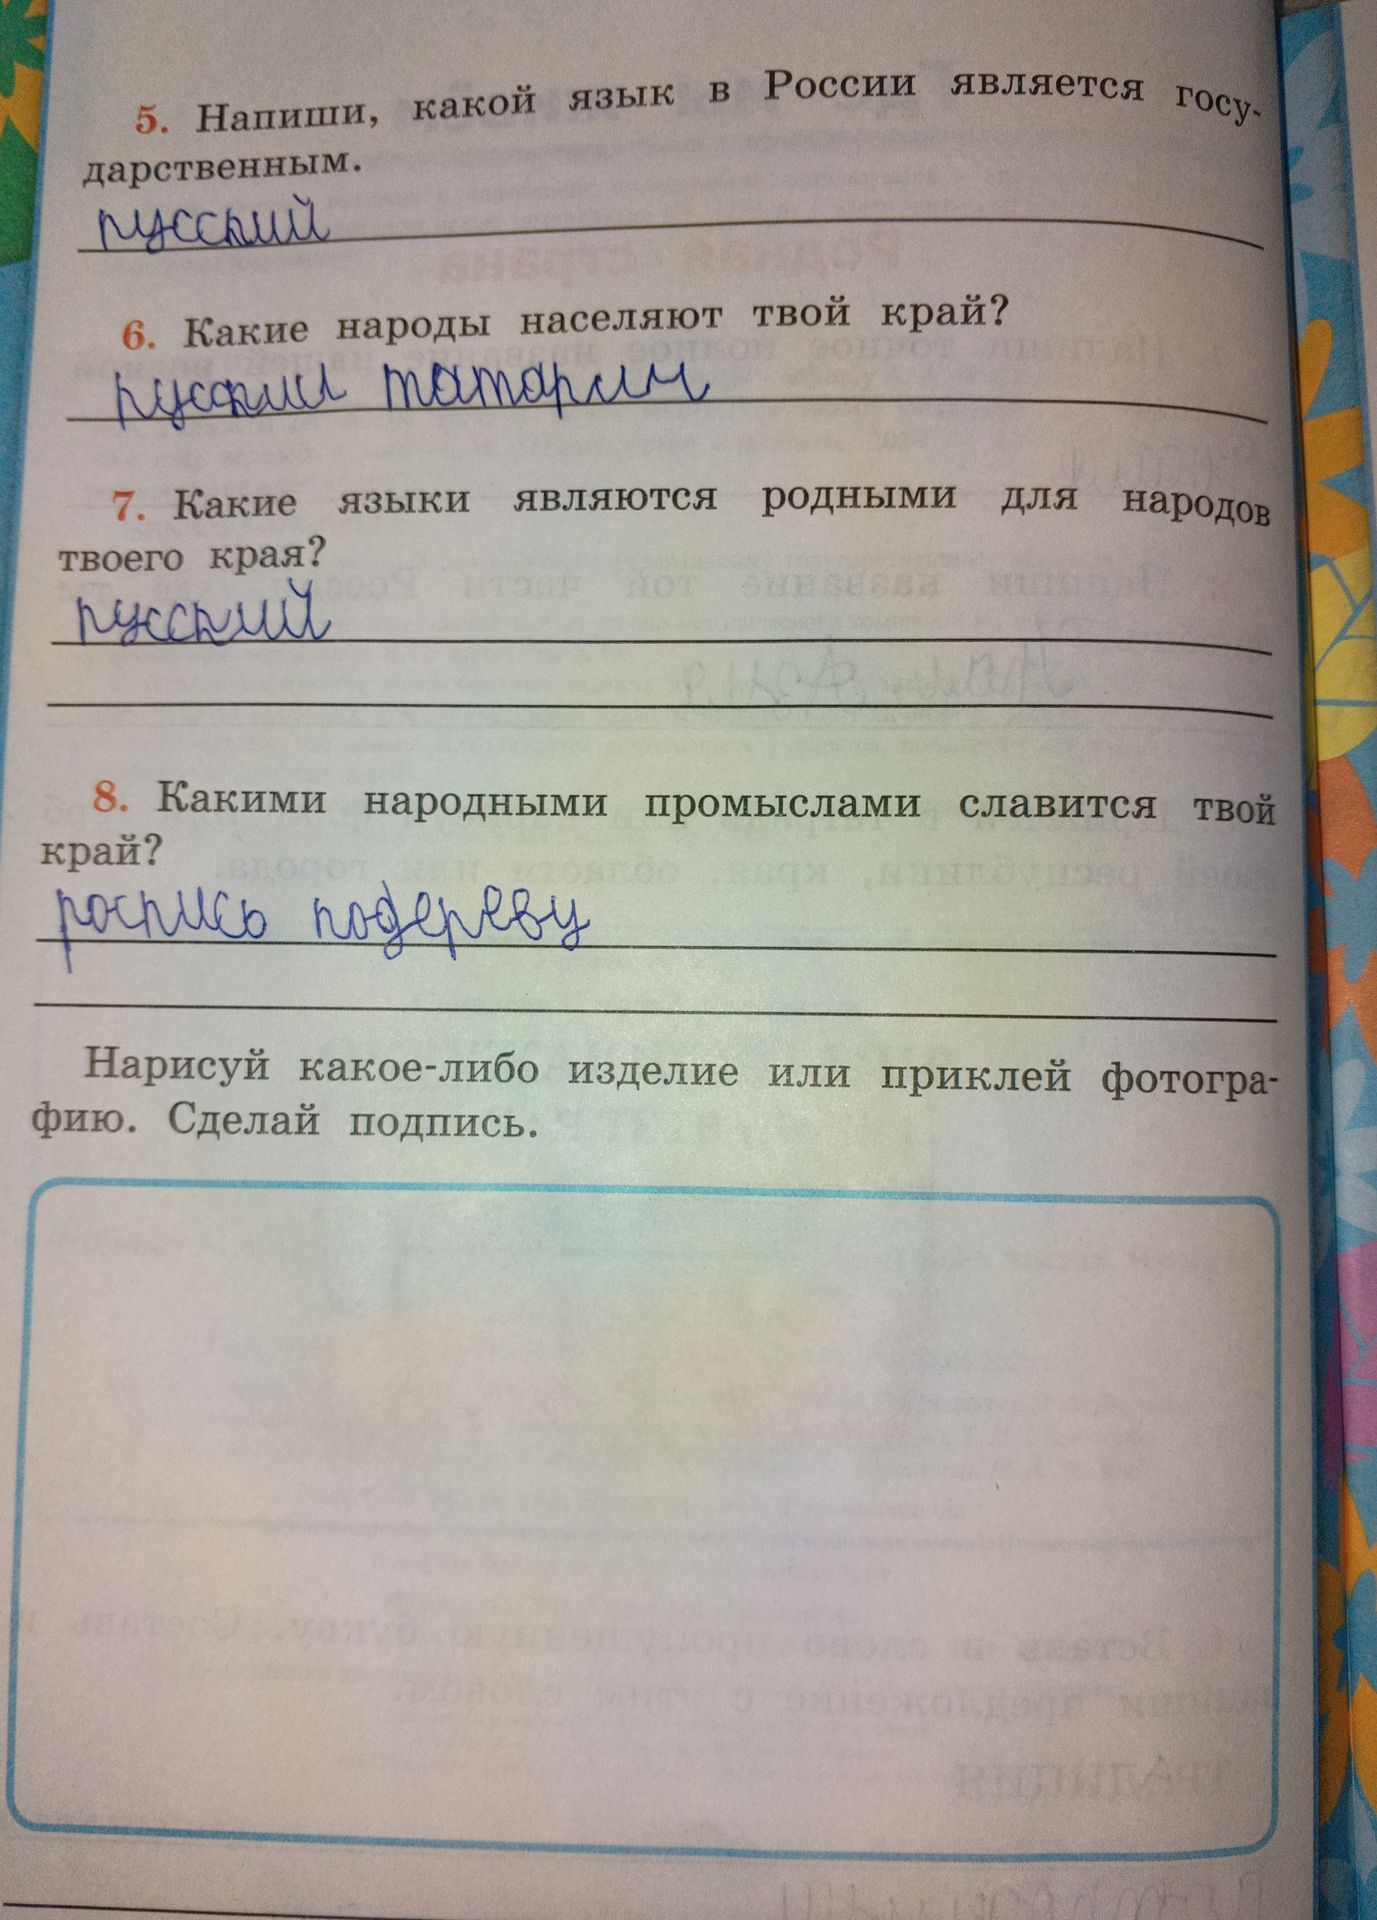 5. Напиши, какой язык в России является госу-
дарственным.
русский
6. Какие народы населяют твой край?
русскии татарин
7. Какие языки являются родными для народов
твоего края?
русский
8. Какими народными промыслами славится твой
край?
роспись подереву
Нарисуй какое-либо изделие или приклей фотогра-
фию. Сделай подпись.